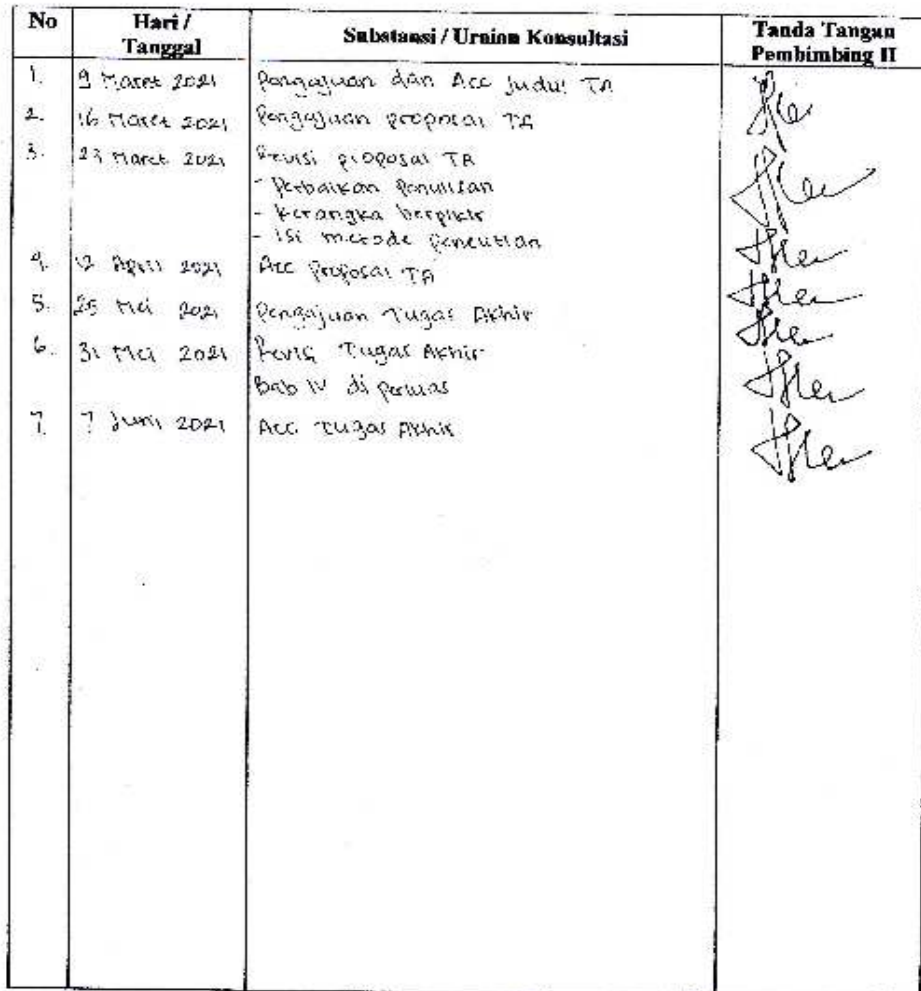 No Hari / Tanggal Substansi / Uraian Konsultasi Tanda Tangan Pembimbing II
1. 9 Maret 2021 Pengajuan dan Acc Judul TA
2. 16 Maret 2021 Pengajuan proposal TA
3. 23 Maret 2021 Revisi proposal TA
- Perbaikan Penulisan
- Kerangka berpikir
- Isi metode penelitian
4. 12 April 2021 Acc Proposal TA
5. 25 Mei 2021 Pengajuan Tugas Akhir
6. 31 Mei 2021 Revisi Tugas Akhir
Bab IV di perluas
7. 7 Juni 2021 Acc Tugas Akhir